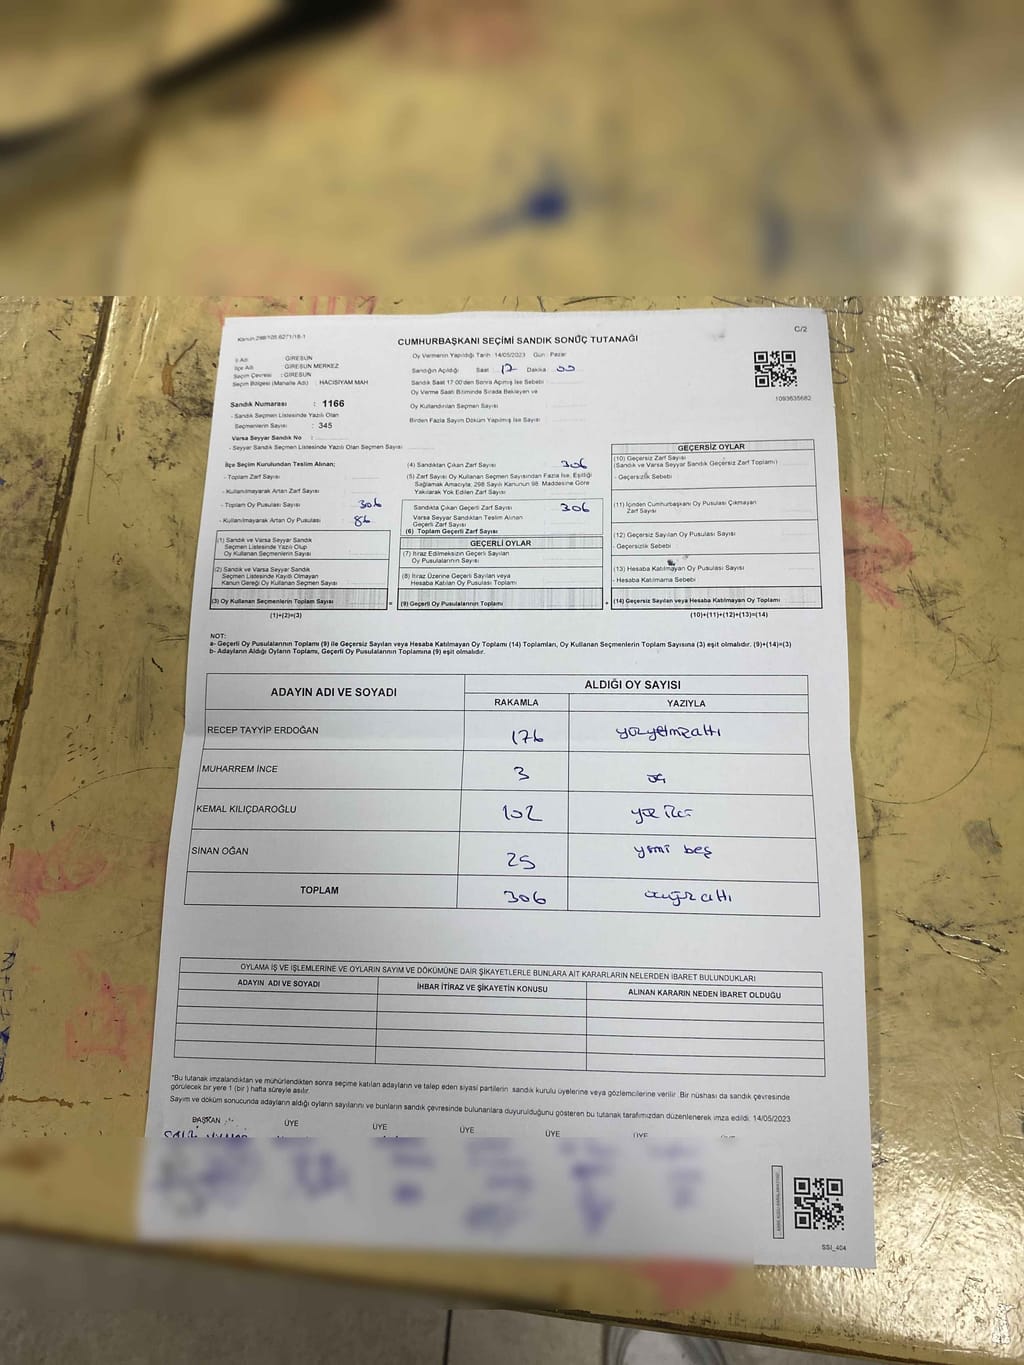 Kanun:298/105 6271/18-1
C/2
CUMHURBAŞKANI SEÇİMİ SANDIK SONUÇ TUTANAĞI
İl Adı : GİRESUN
İlçe Adı : GİRESUN MERKEZ
Seçim Çevresi : GİRESUN
Seçim Bölgesi (Mahalle Adı) : HACISİYAM MAH
Oy Vermenin Yapıldığı Tarih: 14/05/2023 Gün : Pazar
Sandığın Açıldığı Saat 17 Dakika 00
Sandık Saat 17:00'den Sonra Açılmış İse Sebebi
Oy Verme Saati Bitiminde Sırada Bekleyen ve
Oy Kullandırılan Seçmen Sayısı
Birden Fazla Sayım Döküm Yapılmış İse Sayısı
1093635682
Sandık Numarası : 1166
- Sandık Seçmen Listesinde Yazılı Olan
Seçmenlerin Sayısı : 345
Varsa Seyyar Sandık No :
- Seyyar Sandık Seçmen Listesinde Yazılı Olan Seçmen Sayısı
İlçe Seçim Kurulundan Teslim Alınan;
- Toplam Zarf Sayısı
- Kullanılmayarak Artan Zarf Sayısı
- Toplam Oy Pusulası Sayısı 306
- Kullanılmayarak Artan Oy Pusulası 86
(1) Sandık ve Varsa Seyyar Sandık
Seçmen Listesinde Yazılı Olup
Oy Kullanan Seçmenlerin Sayısı
(2) Sandık ve Varsa Seyyar Sandık
Seçmen Listesinde Kayıtlı Olmayan
Kanun Gereği Oy Kullanan Seçmen Sayısı
(3) Oy Kullanan Seçmenlerin Toplam Sayısı
(1)+(2)=(3)
(4) Sandıktan Çıkan Zarf Sayısı 306
(5) Zarf Sayısı Oy Kullanan Seçmen Sayısından Fazla İse, Eşitliği
Sağlamak Amacıyla; 298 Sayılı Kanunun 98. Maddesine Göre
Yakılarak Yok Edilen Zarf Sayısı
Sandıkta Çıkan Geçerli Zarf Sayısı 306
Varsa Seyyar Sandıktan Teslim Alınan
Geçerli Zarf Sayısı
(6) Toplam Geçerli Zarf Sayısı
GEÇERLİ OYLAR
(7) İtiraz Edilmeksizin Geçerli Sayılan
Oy Pusulalarının Sayısı
(8) İtiraz Üzerine Geçerli Sayılan veya
Hesaba Katılan Oy Pusulası Toplamı
= (9) Geçerli Oy Pusulalarının Toplamı
GEÇERSİZ OYLAR
(10) Geçersiz Zarf Sayısı
(Sandık ve Varsa Seyyar Sandık Geçersiz Zarf Toplamı)
- Geçersizlik Sebebi
(11) İçinden Cumhurbaşkanı Oy Pusulası Çıkmayan
Zarf Sayısı
(12) Geçersiz Sayılan Oy Pusulası Sayısı
- Geçersizlik Sebebi
(13) Hesaba Katılmayan Oy Pusulası Sayısı
- Hesaba Katılmama Sebebi
+ (14) Geçersiz Sayılan veya Hesaba Katılmayan Oy Toplamı
(10)+(11)+(12)+(13)=(14)
NOT:
a- Geçerli Oy Pusulalarının Toplamı (9) ile Geçersiz Sayılan veya Hesaba Katılmayan Oy Toplamı (14) Toplamları, Oy Kullanan Seçmenlerin Toplam Sayısına (3) eşit olmalıdır. (9)+(14)=(3)
b- Adayların Aldığı Oyların Toplamı, Geçerli Oy Pusulalarının Toplamına (9) eşit olmalıdır.
ADAYIN ADI VE SOYADI
ALDIĞI OY SAYISI
RAKAMLA YAZIYLA
RECEP TAYYİP ERDOĞAN 176 yüzyetmişaltı
MUHARREM İNCE 3 üç
KEMAL KILIÇDAROĞLU 102 yüz iki
SİNAN OĞAN 25 yirmi beş
TOPLAM 306 üçyüz altı
OYLAMA İŞ VE İŞLEMLERİNE VE OYLARIN SAYIM VE DÖKÜMÜNE DAİR ŞİKAYETLERLE BUNLARA AİT KARARLARIN NELERDEN İBARET BULUNDUKLARI
ADAYIN ADI VE SOYADI İHBAR İTİRAZ VE ŞİKAYETİN KONUSU ALINAN KARARIN NEDEN İBARET OLDUĞU
*Bu tutanak imzalandıktan ve mühürlendikten sonra seçime katılan adayların ve talep eden siyasi partilerin sandık kurulu üyelerine veya gözlemcilerine verilir. Bir nüshası da sandık çevresinde
görülecek bir yere 1 (bir ) hafta süreyle asılır.
Sayım ve döküm sonucunda adayların aldığı oyların sayılarını ve bunların sandık çevresinde bulunanlara duyurulduğunu gösteren bu tutanak tarafımızdan düzenlenerek imza edildi. 14/05/2023
BAŞKAN ÜYE ÜYE ÜYE ÜYE ÜYE ÜYE
SSİ_404